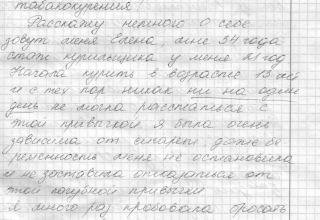 табакокурения!
Расскажу немного о себе
зовут меня Елена, мне 34 года
стаж курильщика у меня 21 год
Начала курить в возрасте 13 лет
и с тех пор никак ни на один
день не могла расстаться с
этой привычкой. я была очень
зависима от сигарет даже бе
ременность меня не остановила
и не заставила отказаться от
этой пагубной привычки
я много раз пробовала бросать